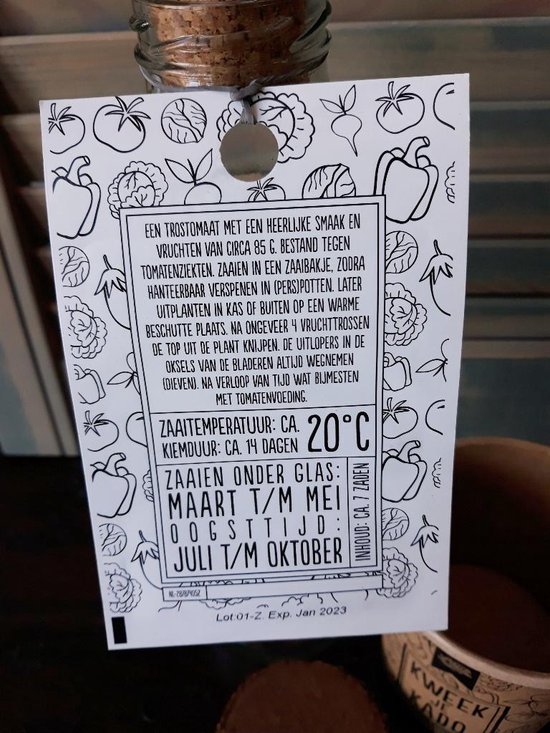 EEN TROSTOMAAT MET EEN HEERLIJKE SMAAK EN
VRUCHTEN VAN CIRCA 85 G. BESTAND TEGEN
TOMATENZIEKTEN. ZAAIEN IN EEN ZAAIBAKJE, ZODRA
HANTEERBAAR VERSPENEN IN (PERS)POTTEN. LATER
UITPLANTEN IN KAS OF BUITEN OP EEN WARME
BESCHUTTE PLAATS. NA ONGEVEER 4 VRUCHTTROSSEN
DE TOP UIT DE PLANT KNIJPEN. DE UITLOPERS IN DE
OKSELS VAN DE BLADEREN ALTIJD WEGNEMEN
(DIEVEN). NA VERLOOP VAN TIJD WAT BIJMESTEN
MET TOMATENVOEDING.
ZAAITEMPERATUUR: CA. 20°C
KIEMDUUR: CA. 14 DAGEN
ZAAIEN ONDER GLAS:
MAART T/M MEI
OOGSTTIJD:
JULI T/M OKTOBER
INHOUD: CA. 7 ZADEN
Lot:01-Z. Exp. Jan 2023
KWEEK
KADO